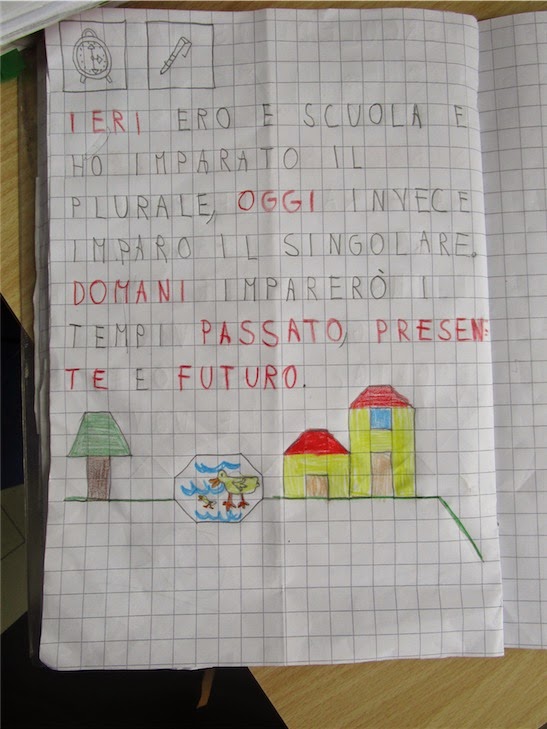 IERI ERO E SCUOLA E
HO IMPARATO IL
PLURALE, OGGI INVECE
IMPARO IL SINGOLARE.
DOMANI IMPARERÒ I
TEMPI PASSATO, PRESEN=
TE E FUTURO.